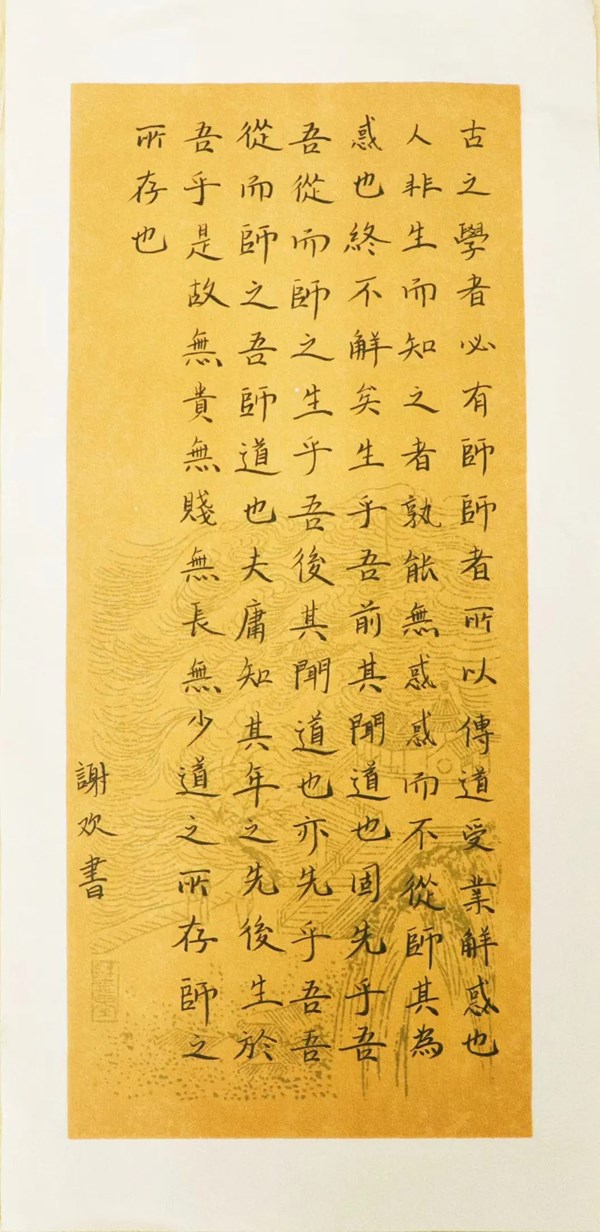 古之學者必有師師者所以傳道受業解惑也
人非生而知之者孰能無惑惑而不從師其為
惑也終不解矣生乎吾前其聞道也固先乎吾
吾從而師之生乎吾後其聞道也亦先乎吾吾
從而師之吾師道也夫庸知其年之先後生於
吾乎是故無貴無賤無長無少道之所存師之
所存也
謝欢書